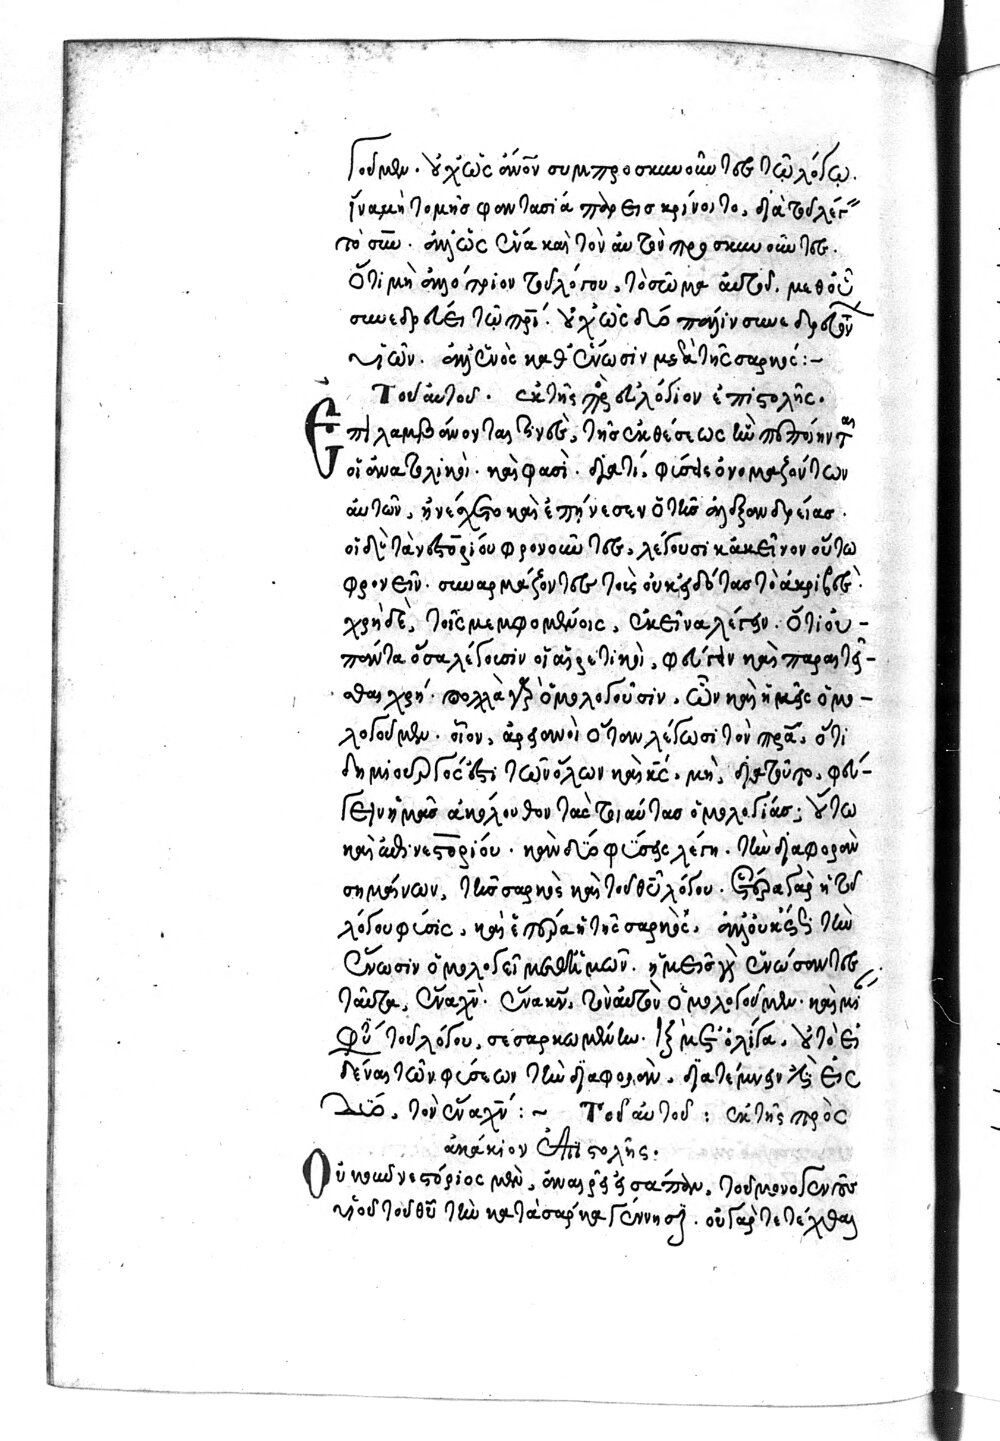 γοῦμεν. οὐχ ὡς ἄνον συμπροσκυνοῦντες τῷ λόγῳ.
ἵνα μὴ τομῆς φαντασία παρεισκρίνοιτο, διὰ τοῦ λέγειν
τὸ σύν. ἀλλ' ὡς ἕνα καὶ τὸν αὐτὸν προσκυνοῦντες.
ὅτι μὴ ἀλλότριον τοῦ λόγου, τὸ σῶμα αὐτοῦ. μεθ' οὗ
συνεδρεύει τῷ πρί. οὐχ ὡς δύο πάλιν συνεδρευόντων
υἱῶν. ἀλλ' ἑνὸς καθ' ἕνωσιν μετὰ τῆς σαρκός:~
Τοῦ αὐτοῦ. ἐκ τῆς πρὸς εὐλόγιον ἐπιστολῆς.
Ἐπιλαμβάνονταί τινες, τῆς ἐκθέσεως ἣν πεποίηνται
οἱ ἀνατολικοὶ. καὶ φασὶ. διατί, φύσεις ὀνομαζόντων
αὐτῶν, ἠνέσχετο καὶ ἐπήνεσεν ὁ τῆς ἀλεξανδρείας.
οἱ δὲ τὰ νεστορίου φρονοῦντες, λέγουσι κἀκεῖνον οὕτω
φρονεῖν. συναρπάζοντες τοὺς οὐκ εἰδότας τὸ ἀκριβές.
χρὴ δὲ, τοῖς μεμφομένοις, ἐκεῖνα λέγειν. ὅτι οὐ
πάντα ὅσα λέγουσιν οἱ αἱρετικοὶ, φεύγειν καὶ παραιτεῖ-
σθαι χρή. πολλὰ γὰρ ὁμολογοῦσιν, ὧν καὶ ἡμεῖς ὁμο-
λογοῦμεν. οἷον, ἀρειανοὶ ὅταν λέγωσι τὸν πρα, ὅτι
δημιουργός ἐστι τῶν ὅλων καὶ κς, μὴ, διὰ τοῦτο, φεύ-
γειν ἡμᾶς ἀκόλουθον τὰς τοιαύτας ὁμολογίας; οὕτω
καὶ ἐπὶ νεστορίου. κἂν δύο φύσεις λέγῃ. τὴν διαφορὰν
σημαίνων, τῆς σαρκὸς καὶ τοῦ θυ λόγου. ἑτέρα γὰρ ἡ τοῦ
λόγου φύσις, καὶ ἑτέρα ἡ τῆς σαρκὸς. ἀλλ' οὐκέτι τὴν
ἕνωσιν ὁμολογεῖ μεθ' ἡμῶν. ἡμεῖς γὰρ ἑνώσαντες
ταῦτα, ἕνα χν. ἕνα κν, τὸν αὐτὸν ὁμολογοῦμεν. καὶ μίαν
φύσιν τοῦ λόγου, σεσαρκωμένην.
δέναι τῶν φύσεων τὴν διαφορὰν, διατέμνειν εἰς
δύο, τὸν ἕνα χν:~ Τοῦ αὐτοῦ: ἐκ τῆς πρὸς
ἀκάκιον ἐπιστολῆς.
Οὐκοῦν νεστόριος μὲν, ἀναιρεῖ τοῦ μονογενοῦς
υἱοῦ τοῦ θυ τὴν κατὰ σάρκα γέννησιν. οὐ γὰρ τετέχθαι